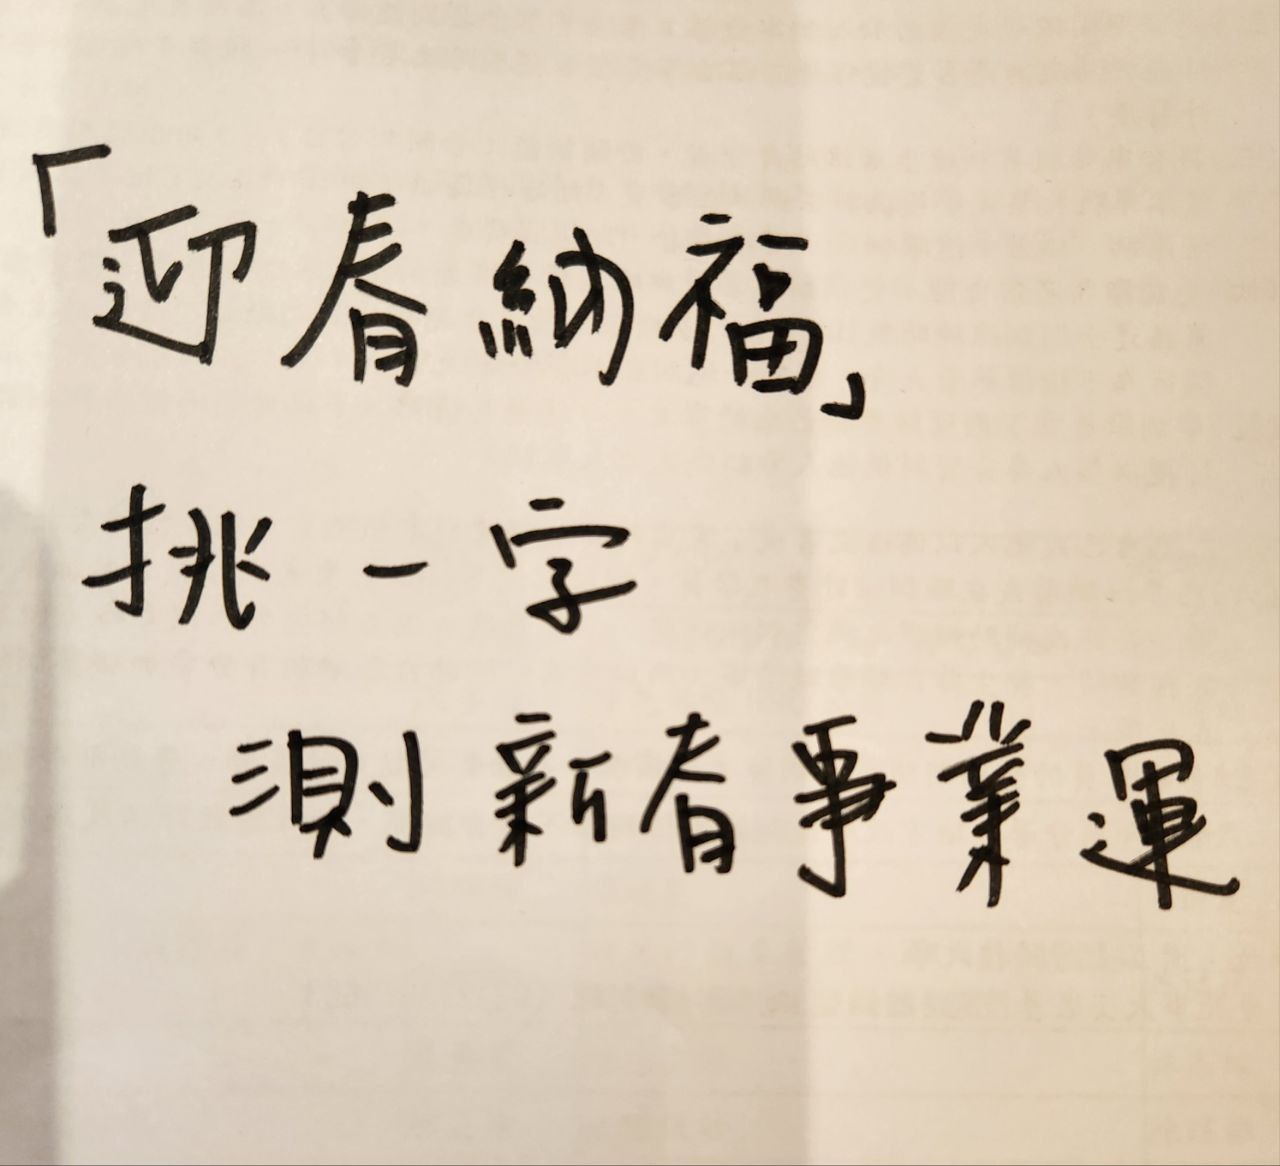 「迎春納福」
挑一字
測新春事業運